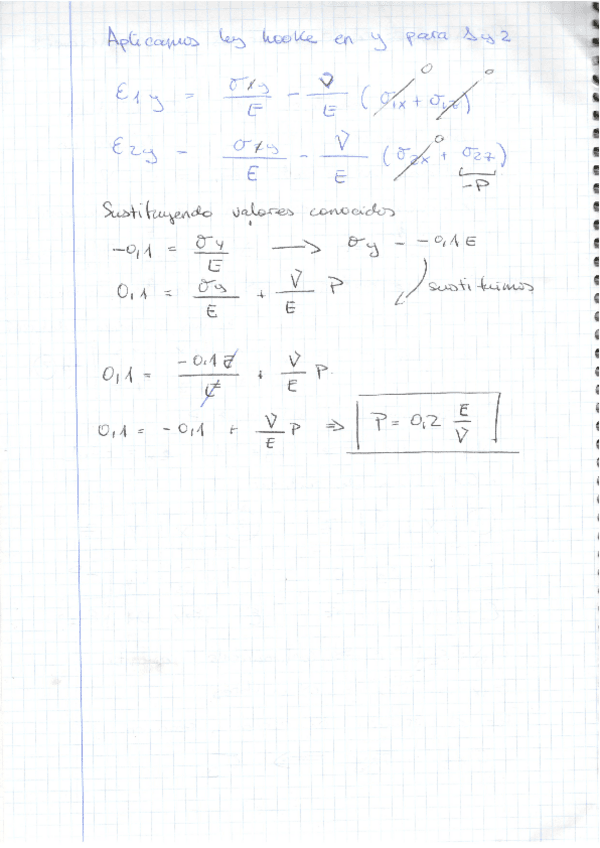 Aplicamos ley hooke en y para 1 y 2
ε1y = σ1y/E - ν/E (σ1x + σ1z) 0 0
ε2y = σ1y/E - ν/E (σ2x + σ2z) 0 -P
Sustituyendo valores conocidos
-0,1 = σy/E → σy = -0,1E
0,1 = σy/E + ν/E P sustituimos
0,1 = -0,1E/E + ν/E P
0,1 = -0,1 + ν/E P ⇒ P = 0,2 E/ν